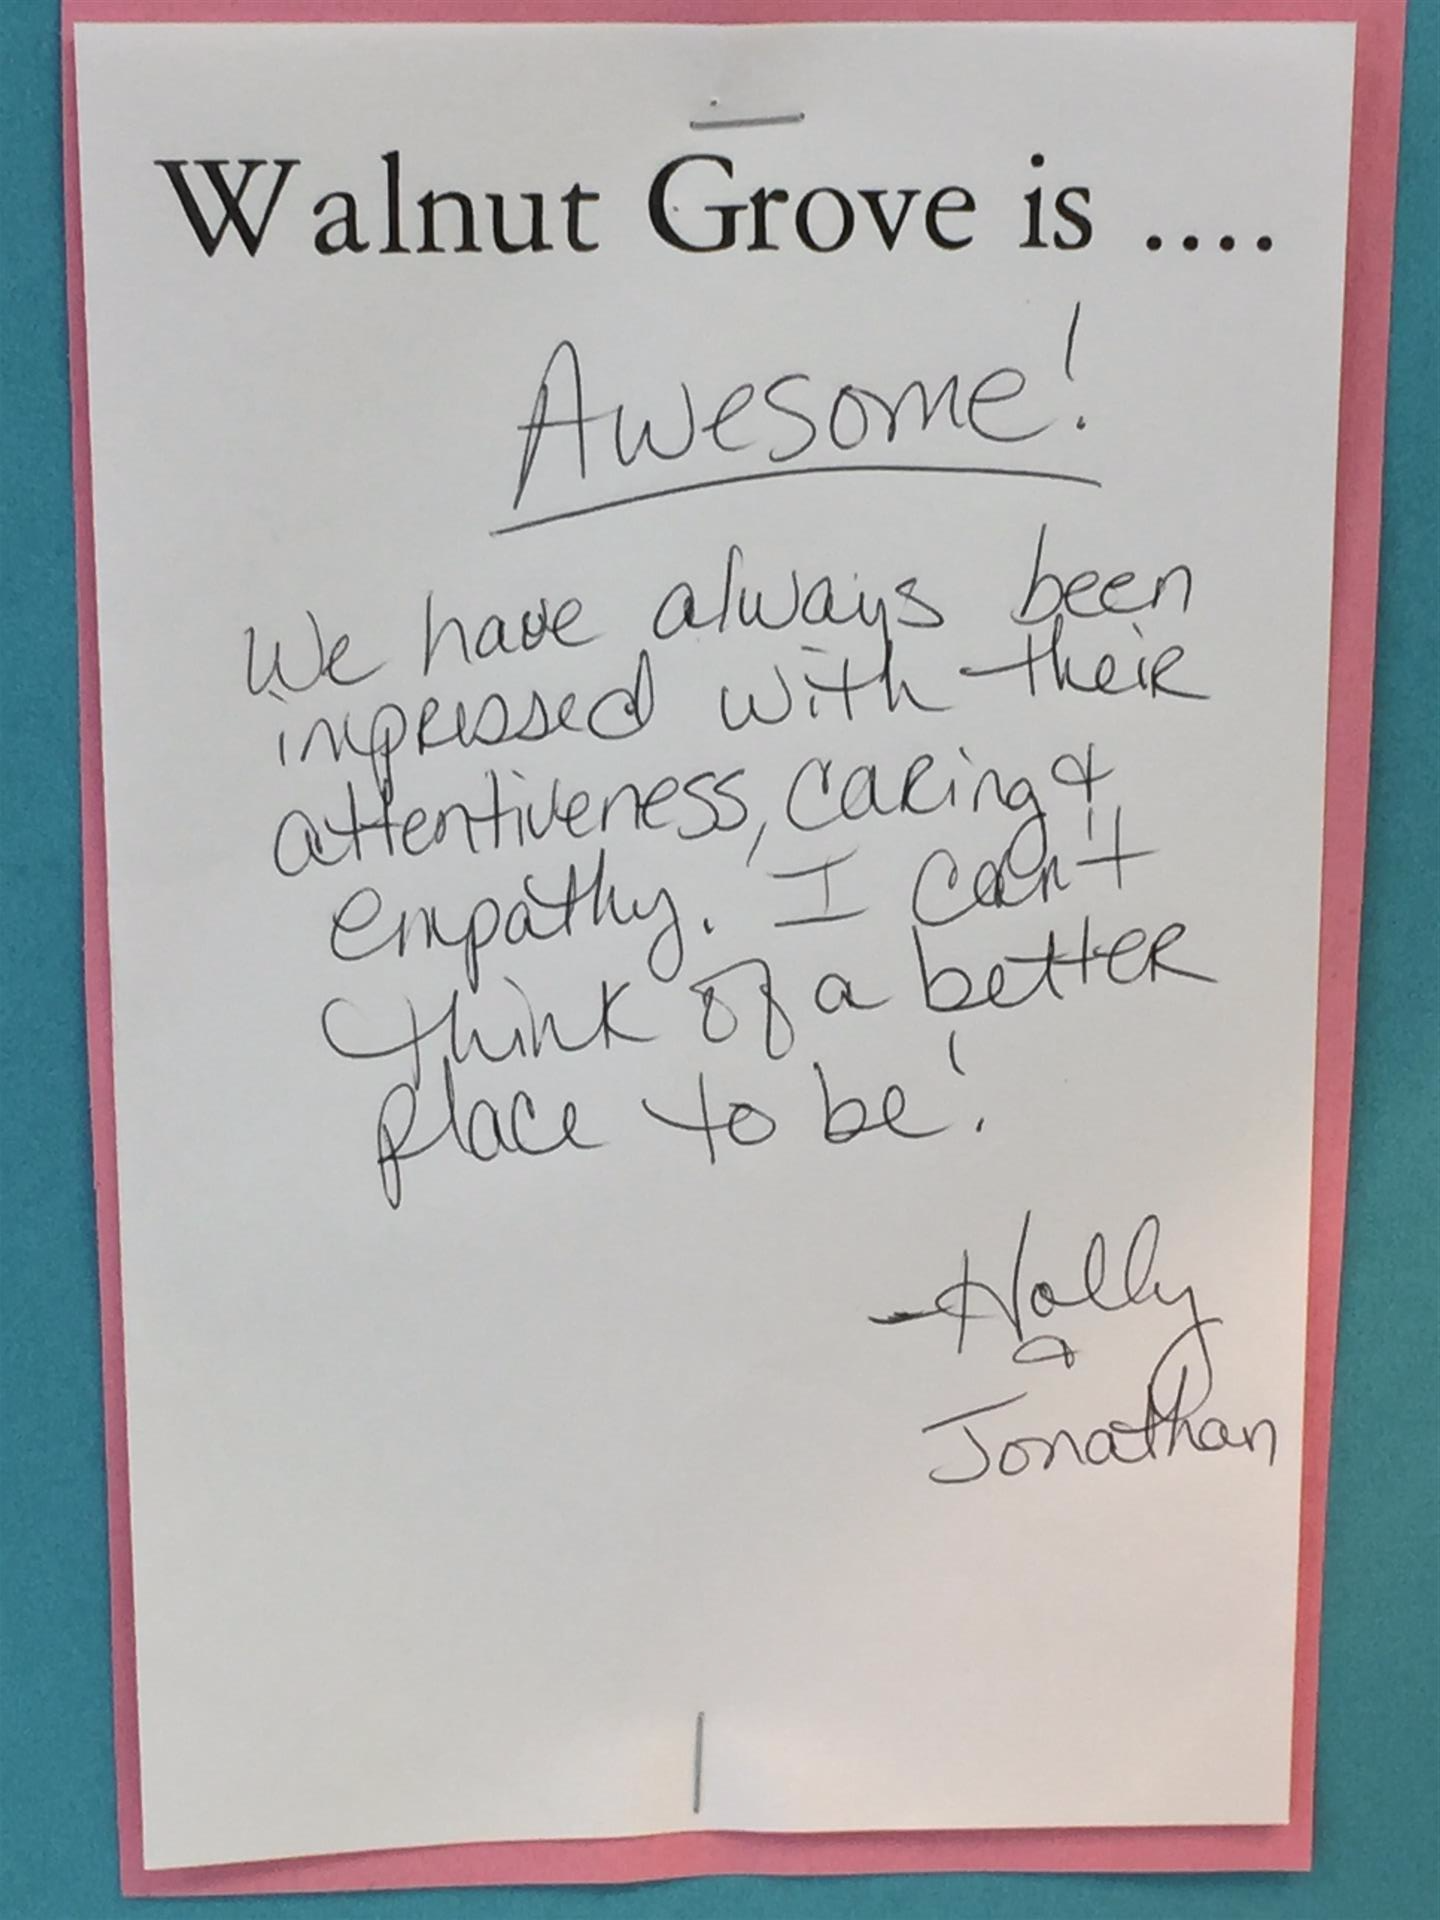 Walnut Grove is ....
Awesome!
We have always been
impressed with their
attentiveness, caring &
empathy. I can't
think of a better
place to be!
- Holly
&
Jonathan